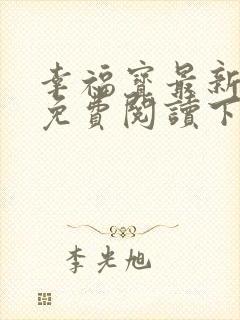 幸福寳最新
免費閱讀下
李光旭